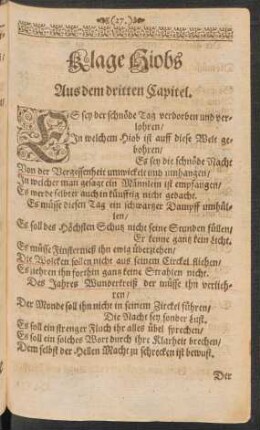 (27.)
Klage Hiobs
Aus dem dritten Capitel.
ES sey der schnöde Tag verdorben und ver-
lohren/
In welchem Hiob ist auff diese Welt ge-
bohren/
Es sey die schnöde Nacht
Von der Vergessenheit umwickelt und umhangen/
In welcher man gesagt ein Männlein ist empfangen/
Es werde selber auch in künfftig nicht gedacht.
Es müsse diesen Tag ein schwartzer Dampff umhül-
len/
Es soll des Höchsten Schutz nicht seine Stunden füllen/
Er kenne gantz kein Licht.
Es müsse Finsterniß ihn ewig überziehen/
Die Wolcken sollen nicht aus seinem Circkel fliehen/
Es ziehren ihn forthin gantz keine Strahlen nicht.
Des Jahres Wunderkreiß der müsse ihn verlieh-
ren/
Der Monde soll ihn nicht in seinem Zirckel führen/
Die Nacht sey sonder Lust,
Es soll ein strenger Fluch ihr alles übel sprechen/
Es soll ein solches Wort durch ihre Klarheit brechen/
Dem selbst der Hellen Macht zu schrecken ist bewust.
Der